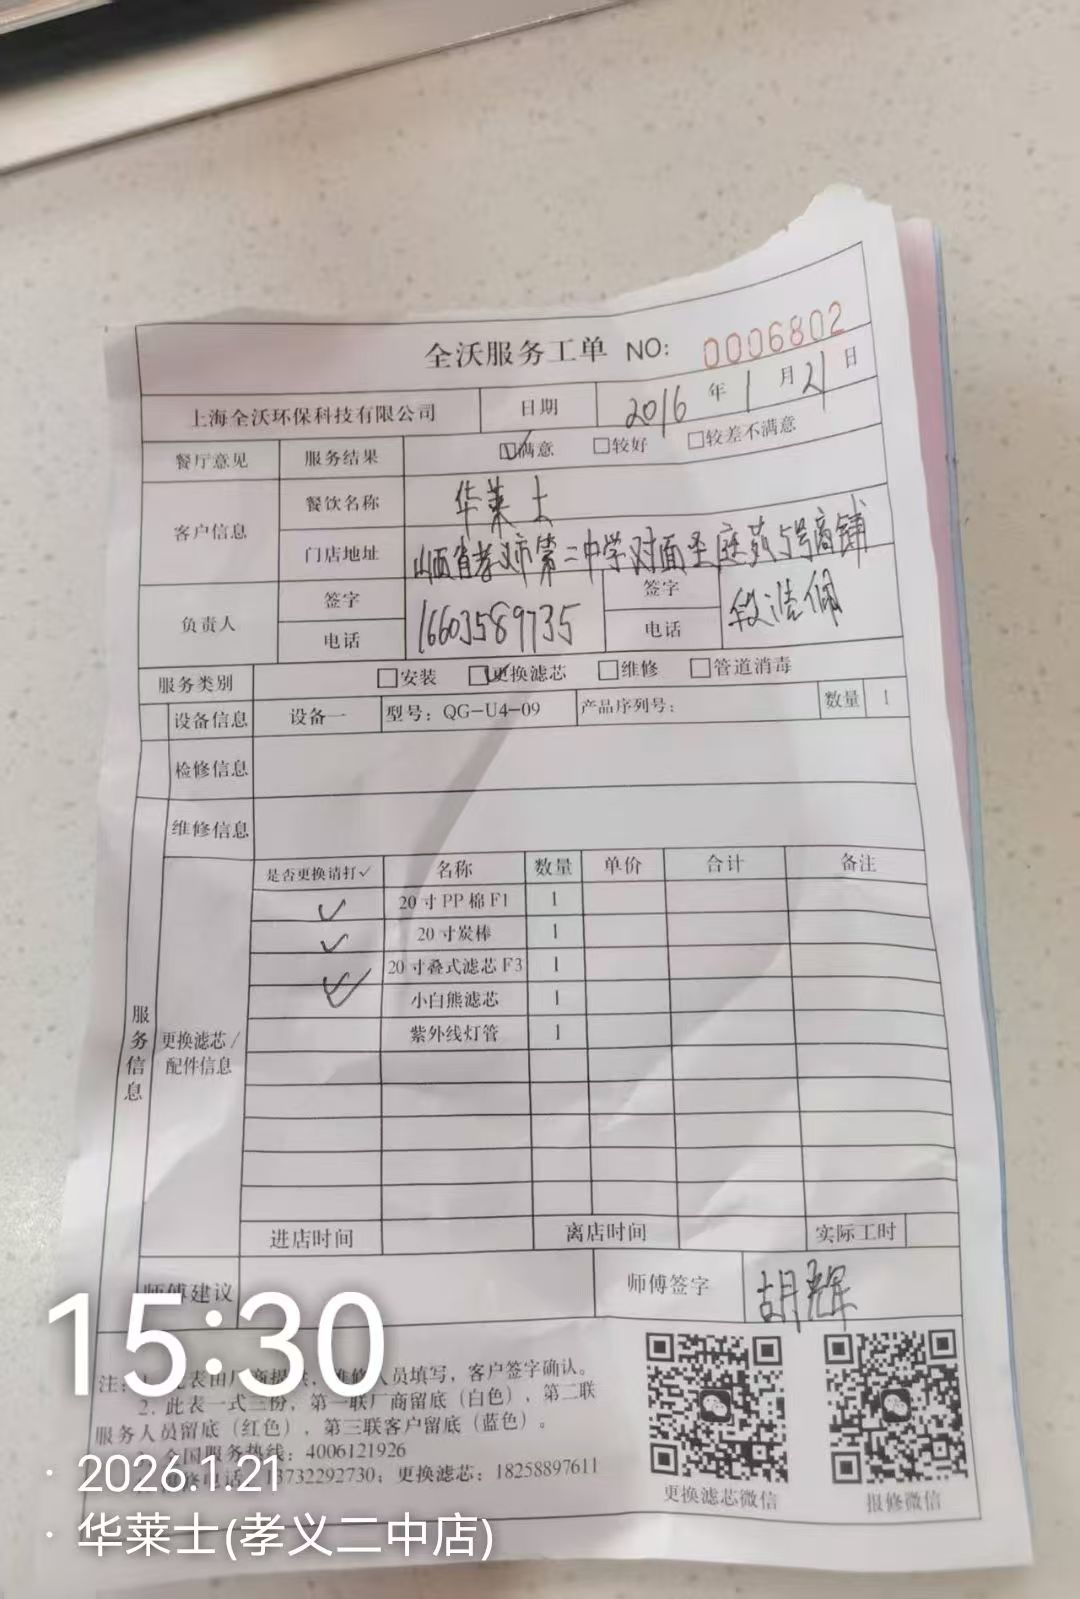 全沃服务工单 NO: 0006802
上海全沃环保科技有限公司 日期 2016 年 1 月 21 日
餐厅意见 服务结果 ☑满意 □较好 □较差不满意
客户信息 餐饮名称 华莱士
门店地址 山西省孝义市第二中学对面圣庭苑5号商铺
负责人 签字 签字 段浩佩
电话 16603589735 电话
服务类别 □安装 ☑更换滤芯 □维修 □管道消毒
设备信息 设备一 型号：QG-U4-09 产品序列号： 数量 1
检修信息
维修信息
服务信息
更换滤芯/
配件信息
是否更换请打✓ 名称 数量 单价 合计 备注
✓ 20寸PP棉F1 1
✓ 20寸炭棒 1
✓ 20寸叠式滤芯F3 1
✓ 小白熊滤芯 1
紫外线灯管 1
进店时间 离店时间 实际工时
师傅建议 师傅签字 胡辉
注：1.此表由厂商提供，维修人员填写，客户签字确认。
2.此表一式三份，第一联厂商留底（白色），第二联
服务人员留底（红色），第三联客户留底（蓝色）。
全国服务热线：4006121926
电话：13732292730；更换滤芯：18258897611
更换滤芯微信 报修微信
15:30
· 2026.1.21
· 华莱士(孝义二中店)